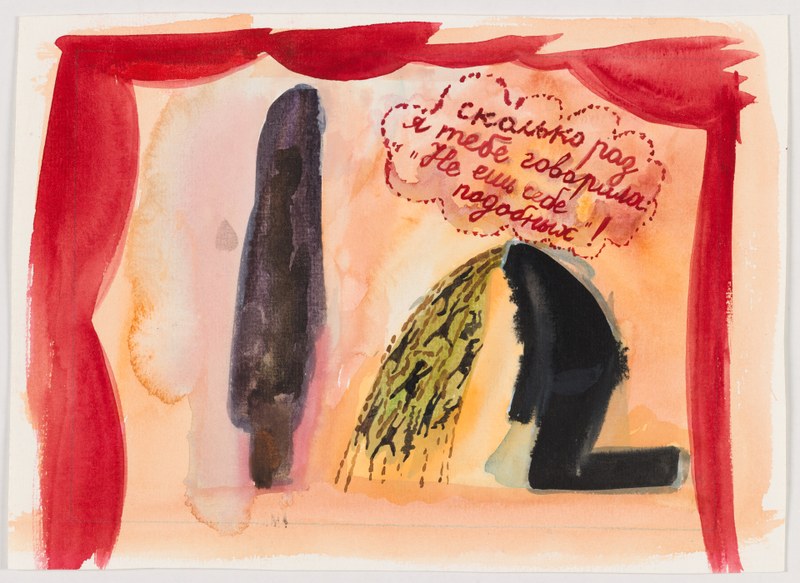 сколько раз
я тебе говорила
"Не ешь себе
подобных"!